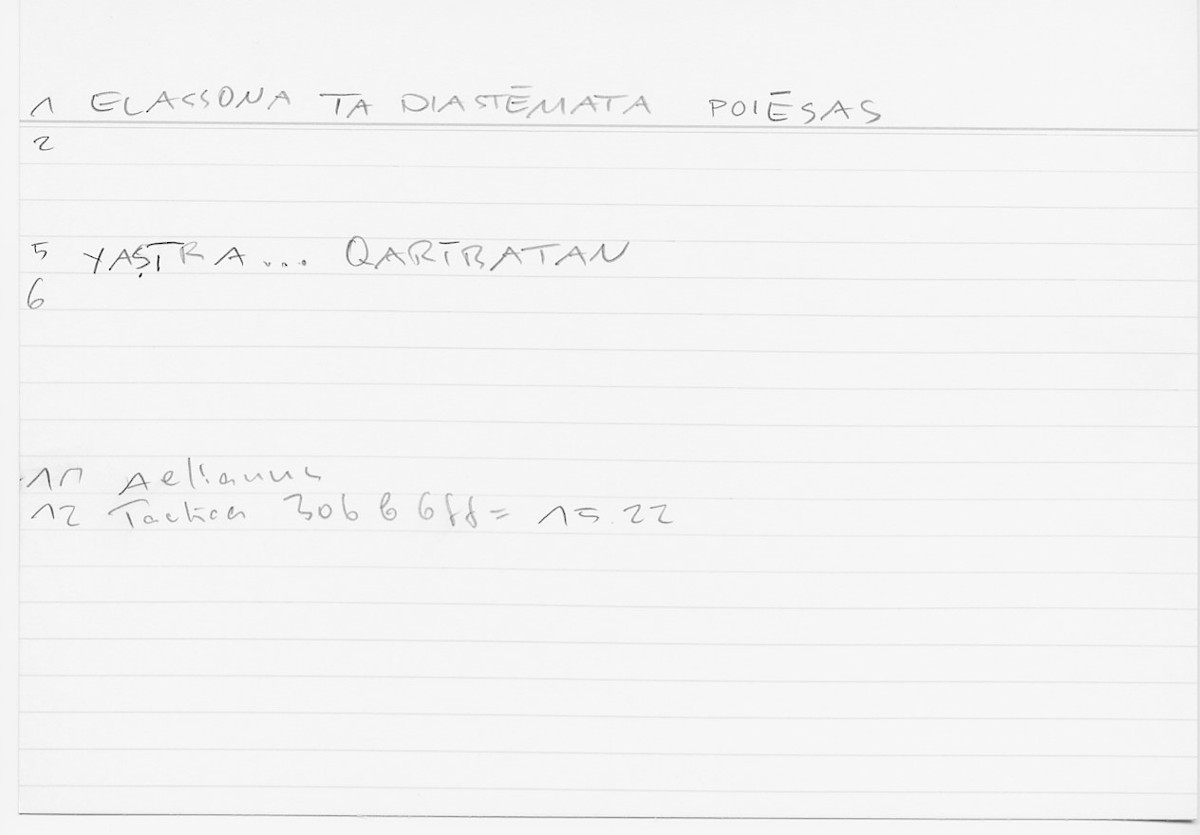 1 ELASSONA TA DIASTĒMATA POIĒSAS
2
5 YAṢṬRA... QARĪBATAN
6
11 Aelianus
12 Tactica 306 b 6ff = 15.22